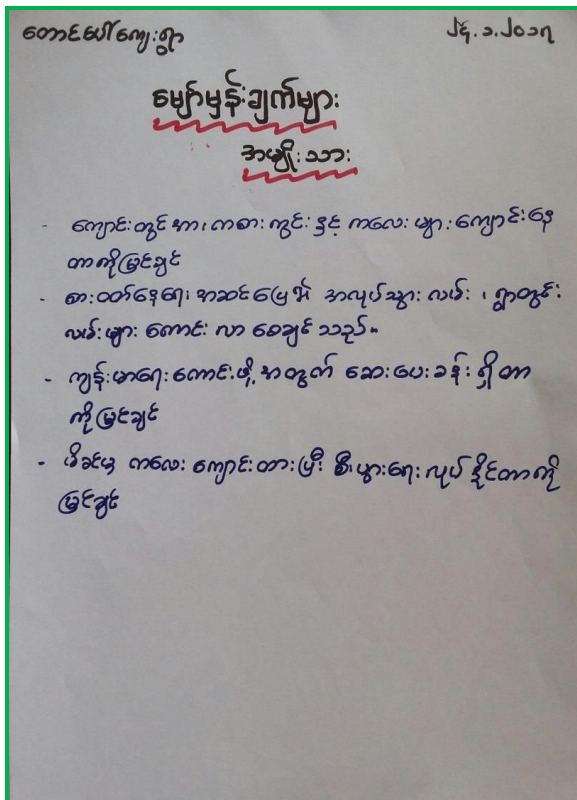 တောင်ပေါ်ကျေးရွာ
၂၄.၁.၂၀၁၇
မျှော်မှန်းချက်များ
အမျိုးသား
- ကျောင်းတွင် အား၊ကစား ကွင်း နှင့် ကလေး များ ကျောင်းနေ
တာကိုမြင်ချင်
- စားဝတ်နေရေး အဆင်ပြေ၍ အလုပ်သွား လမ်း ၊ ရွာတွင်း
လမ်းများ ကောင်း လာ စေချင် သည်။
- ကျန်းမာရေးကောင်းဖို့ အတွက် ဆေးပေးခန်း ရှိတာ
ကိုမြင်ချင်
- မိခင်မှ ကလေး ကျောင်းထားပြီး စီးပွားရေး လုပ် နိုင်တာကို
မြင်ချင်